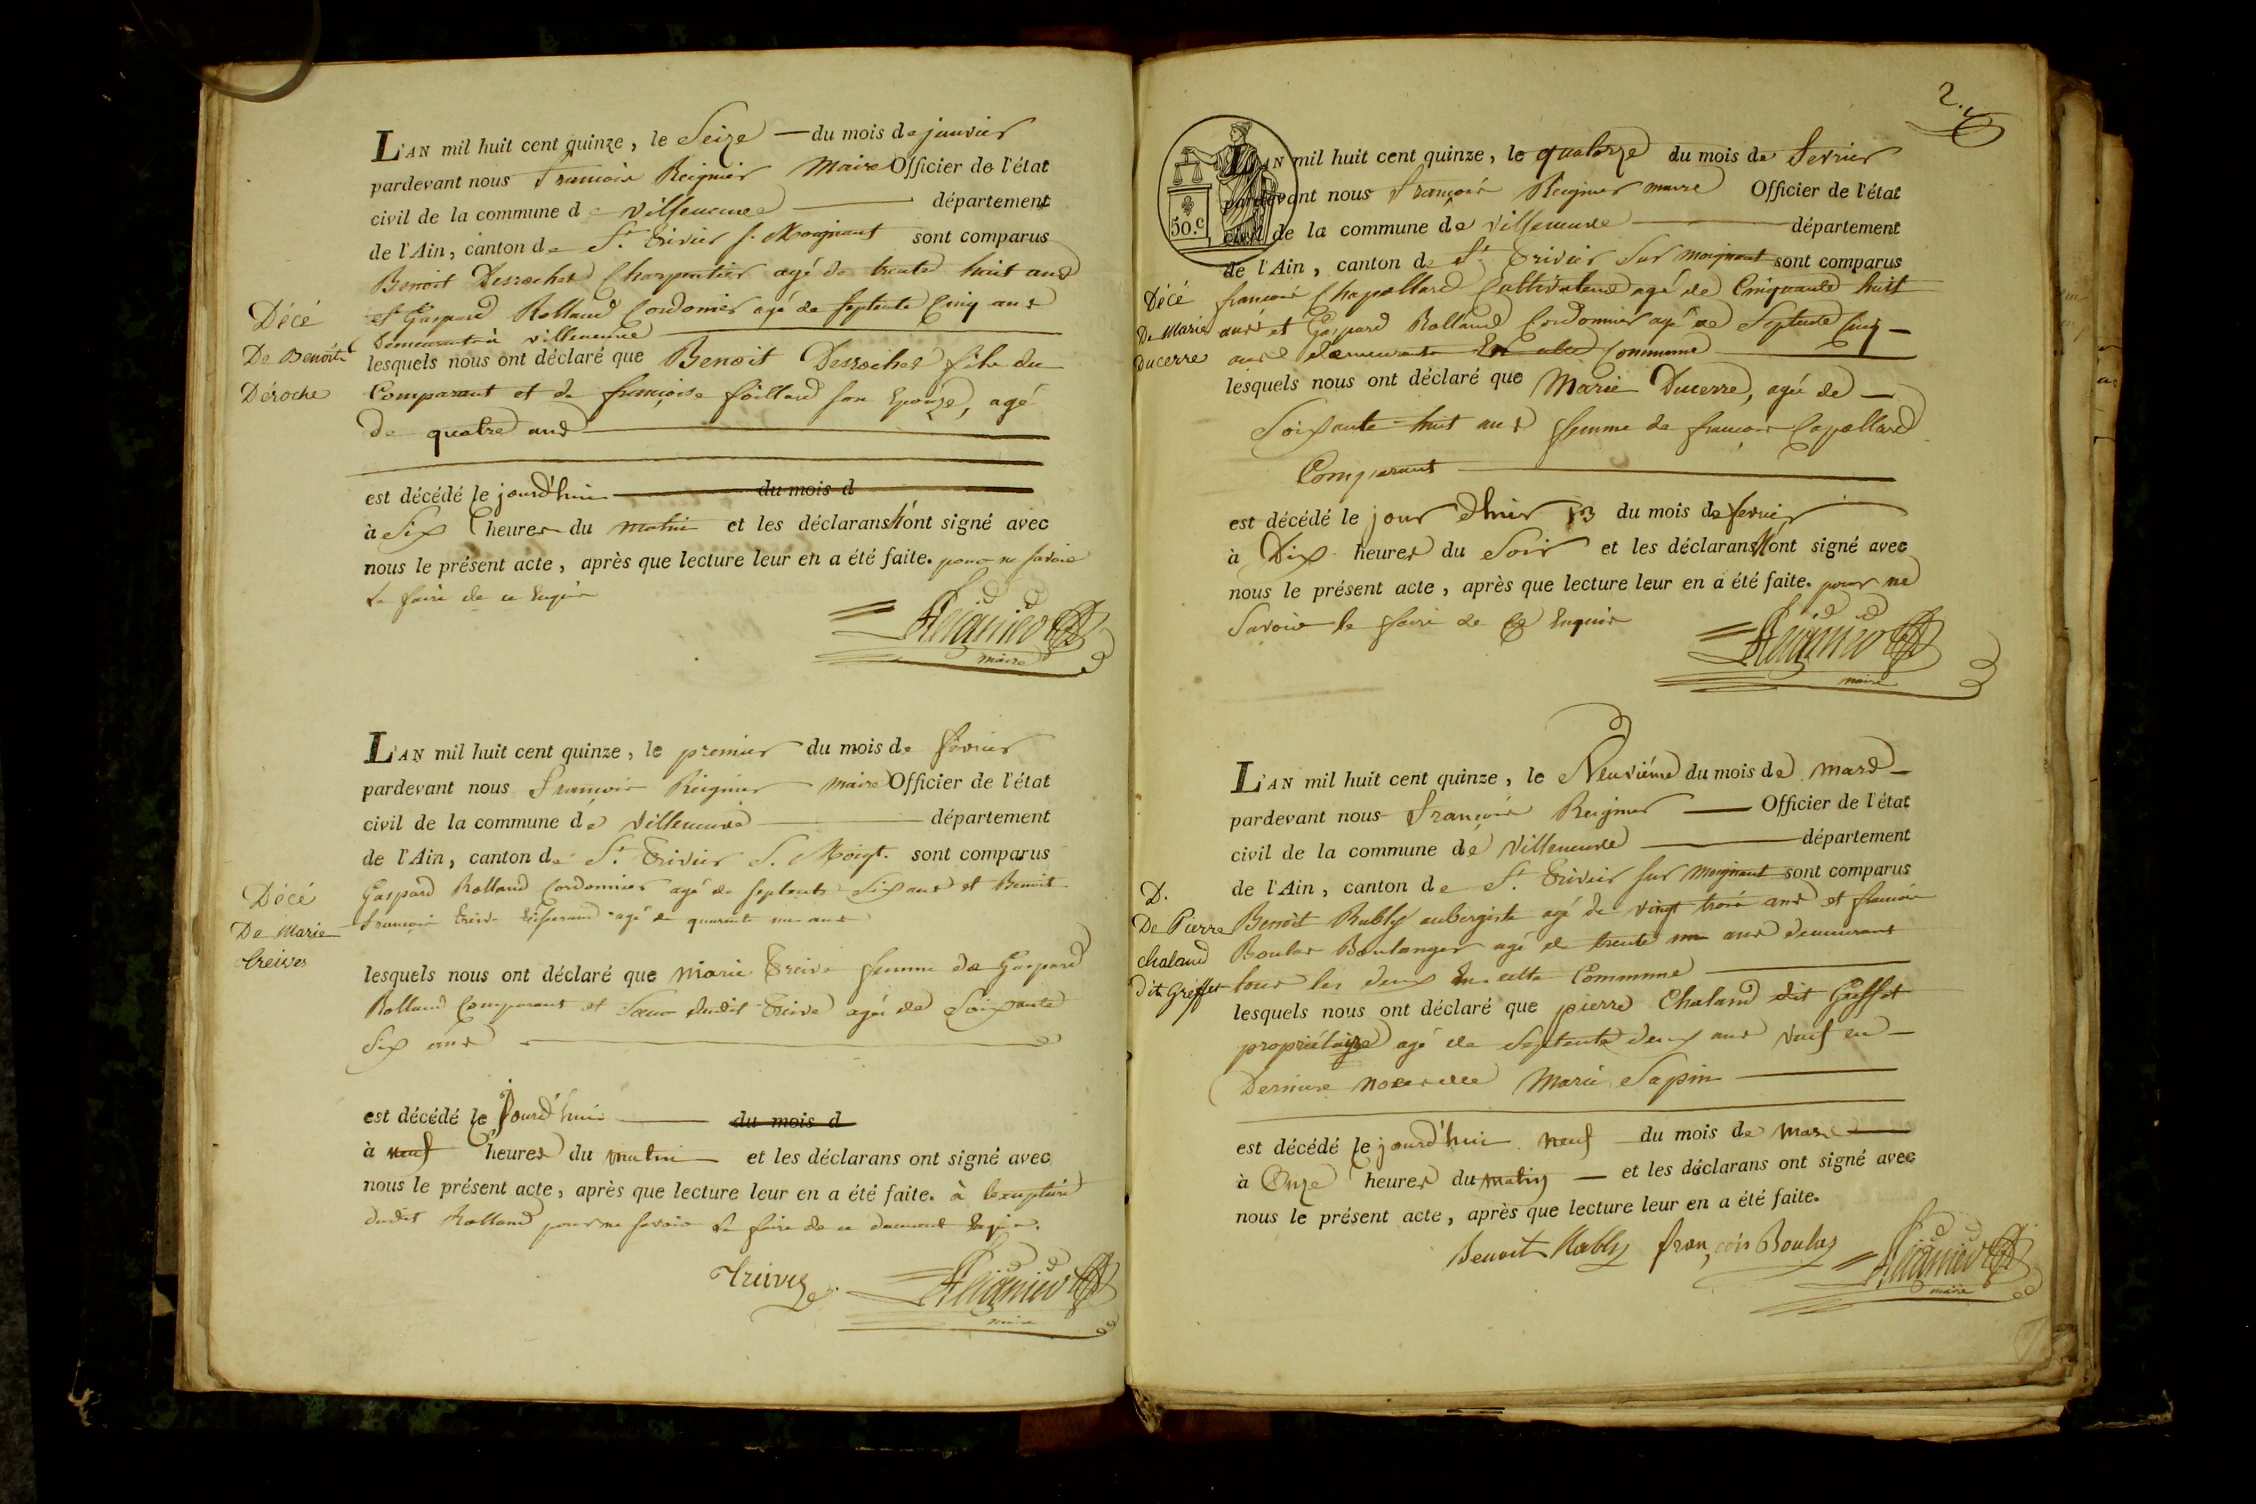 L'AN mil huit cent quinze, le Seize du mois de janvier
pardevant nous François Reignier Maire Officier de l'état
civil de la commune de Villeneuve département
de l'Ain, canton de St. Trivier s. Moignant sont comparus
Benoit Desroches Charpentier agé de trente huit ans
et Gaspard Rolland Cordonier agé de septente Cinq ans
Demeurant à villeneuve
Décé
De Benôit
Déroche
lesquels nous ont déclaré que Benoit Desroches fils du
Comparant et de françoise foillard son Epouze, agé
de quatre ans
est décédé le jourd'hui du mois d
à Six heures du matin et les déclarans n'ont signé avec
nous le présent acte, après que lecture leur en a été faite. pour ne savoir
le faire de ce Enquis
Reignier
maire
L'AN mil huit cent quinze, le premier du mois de février
pardevant nous François Reignier maire Officier de l'état
civil de la commune de Villeneuve département
de l'Ain, canton de St. Trivier S. Moigt. sont comparus
Gaspard Rolland Cordonnier agé de septente Six ans et Benoit
François Treive agé de quarente un ans
Décé
De Marie
Treives
lesquels nous ont déclaré que Marie Treive femme de Gaspard
Rolland Comparant et Sœur dudit Treive agée de Soixante
Six ans
est décédé le jourd'hui du mois d
à neuf heures du matin et les déclarans ont signé avec
nous le présent acte, après que lecture leur en a été faite. à
dudit Rolland pour ne savoir le faire de ce Enquis.
Treives
Reignier
maire
2.
50.c
L'AN mil huit cent quinze, le quatorze du mois de fevrier
pardevant nous François Reignier maire Officier de l'état
civil de la commune de Villeneuve département
de l'Ain, canton de St. Trivier Sur moignant sont comparus
françois Chapollard Cultivateur agé de Cinquante huit
ans et Gaspard Rolland Cordonnier agé de Septente Cinq
ans demeurants En Commune
Décé
De Marie
Ducerre
lesquels nous ont déclaré que Marie Ducerre, agée de
Soixante huit ans femme de françois Capollard
Comparant
est décédé le jour dhier 13 du mois de fevrier
à Dix heures du Soir et les déclarans n'ont signé avec
nous le présent acte, après que lecture leur en a été faite. pour ne
Savoir le faire de ce Enquis
Reignier
maire
L'AN mil huit cent quinze, le Neuviéme du mois de mars
pardevant nous François Reignier Officier de l'état
civil de la commune de Villeneuve département
de l'Ain, canton de St. Trivier sur Moignant sont comparus
Benoit Rably aubergiste agé de vingt trois ans et françois
Boulas Boulanger agé de trente un ans demeurant
tous les deux En cette Commune
D.
De Pierre
chaland
dit Greffet
lesquels nous ont déclaré que pierre Chaland dit Greffet
propriétaire agé de Septente deux ans veuf en
Derniere de Marie Sapin
est décédé le jourd'hui neuf du mois de mars
à Onze heures du matin et les déclarans ont signé avec
nous le présent acte, après que lecture leur en a été faite.
Benoit Rably françois Boulas Reignier
maire